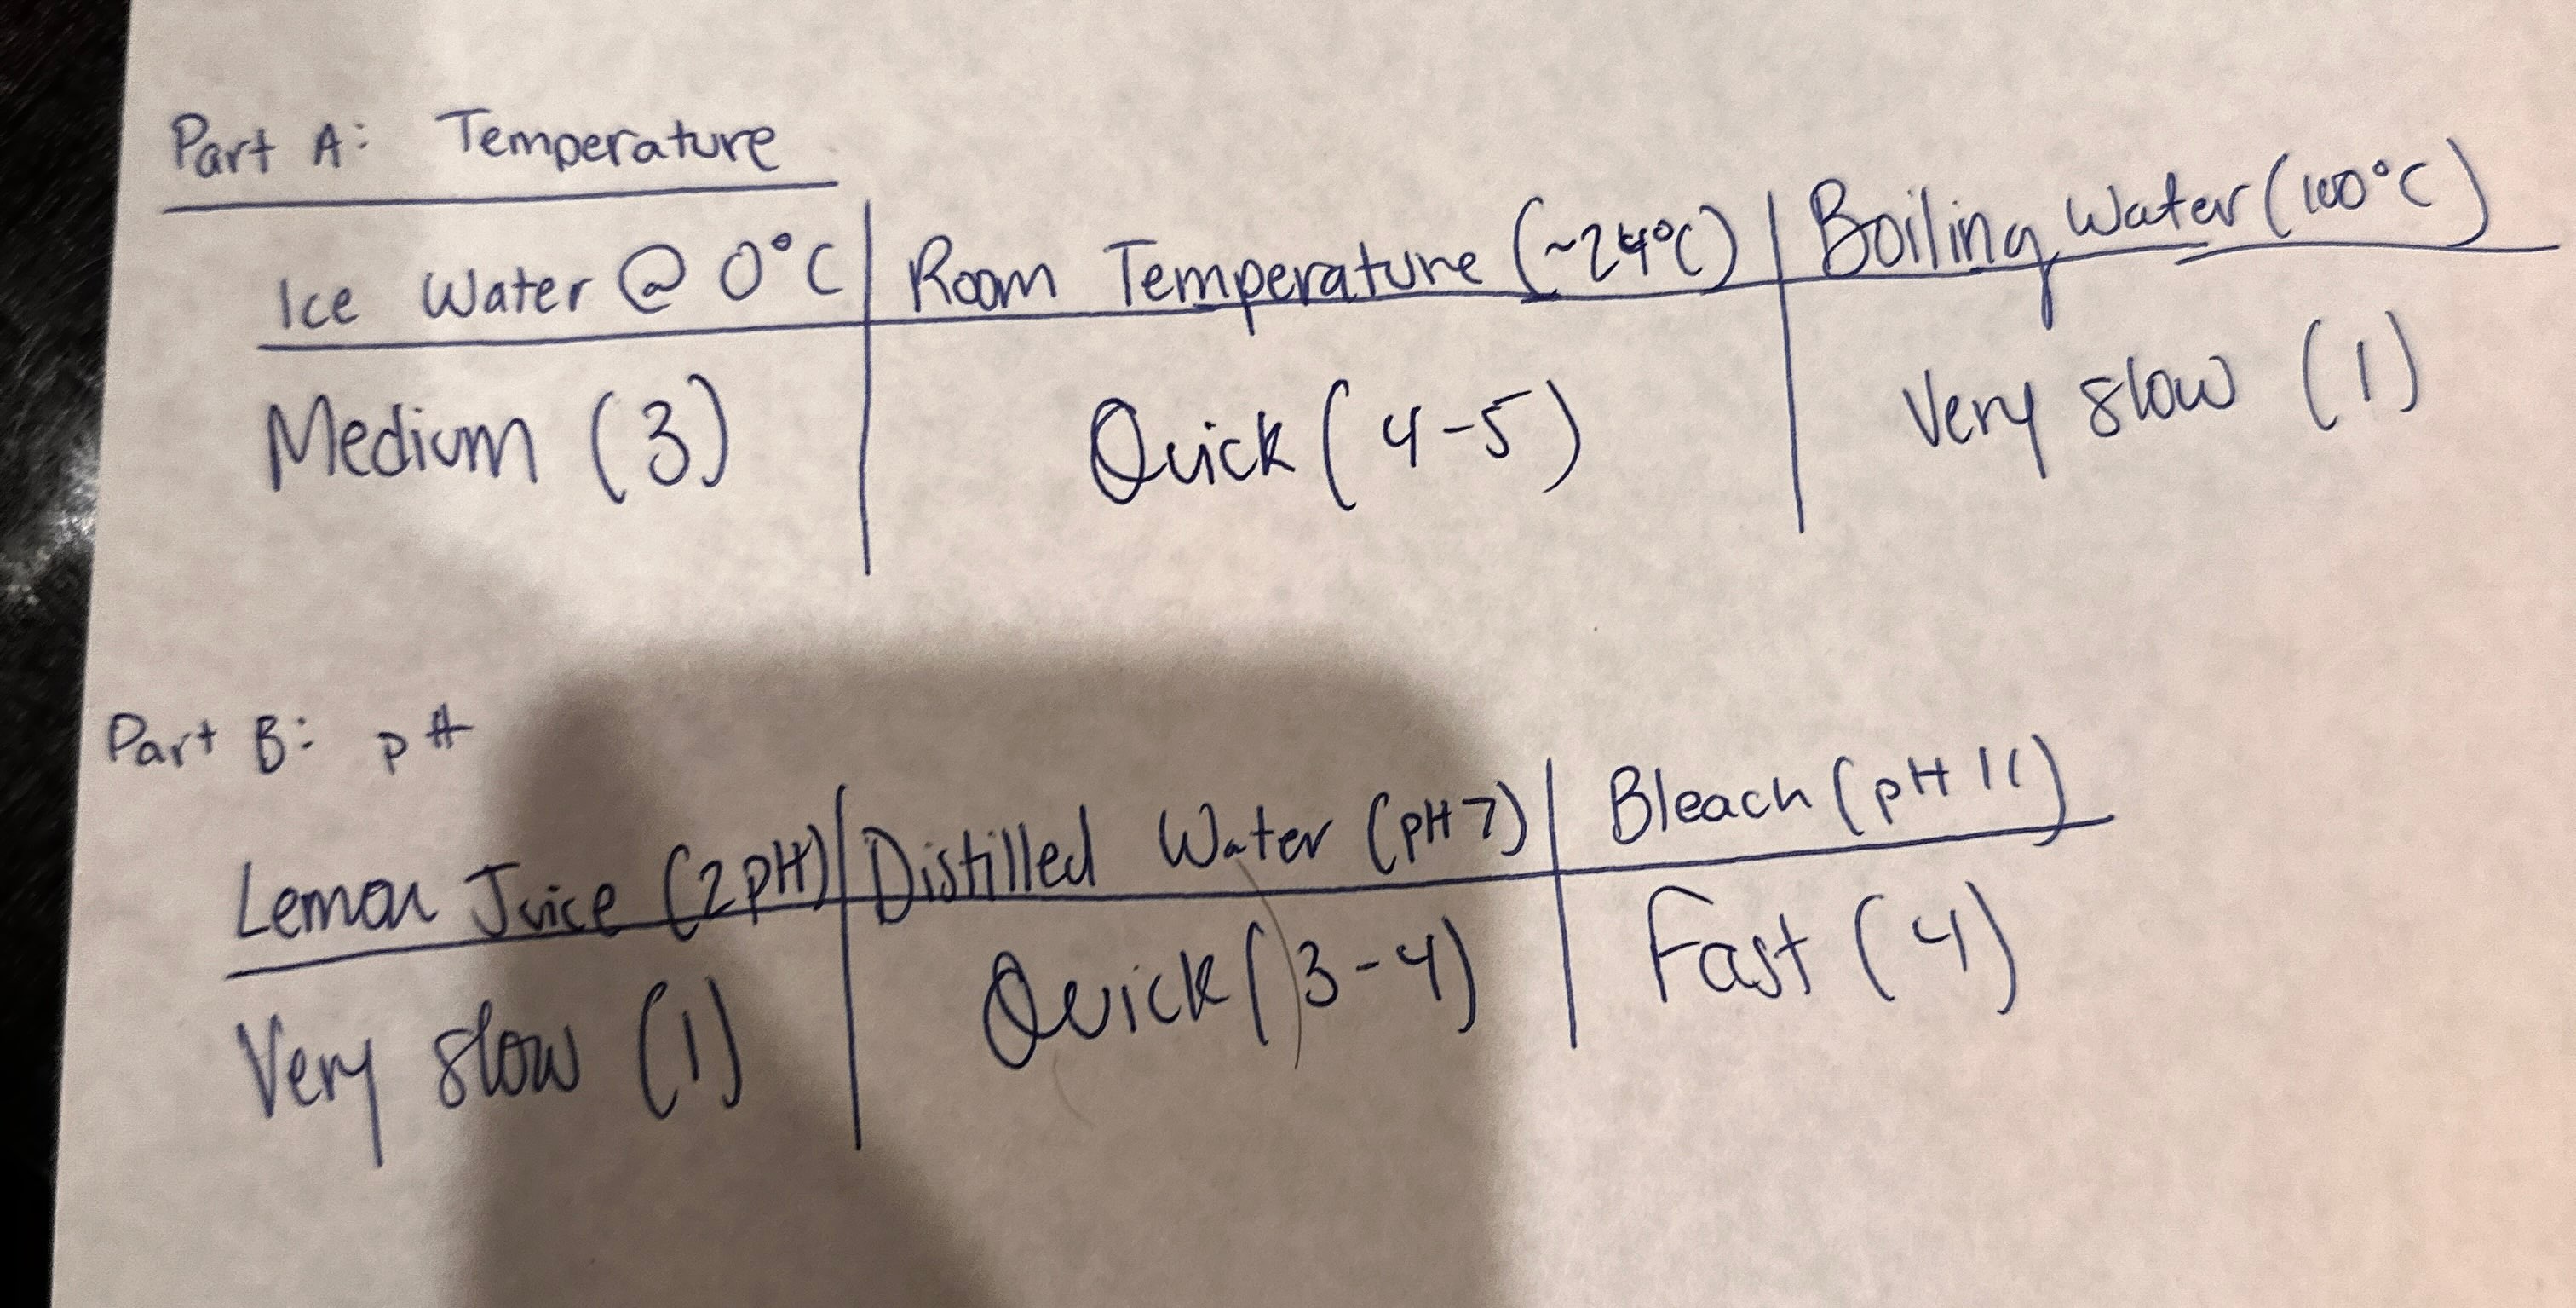 Part A: Temperature
Ice Water @ 0°C | Room Temperature (~24°C) | Boiling Water (100°C)
Medium (3) | Quick (4-5) | Very slow (1)
Part B: pH
Lemon Juice (2pH) | Distilled Water (pH 7) | Bleach (pH 11)
Very slow (1) | Quick (3-4) | Fast (4)